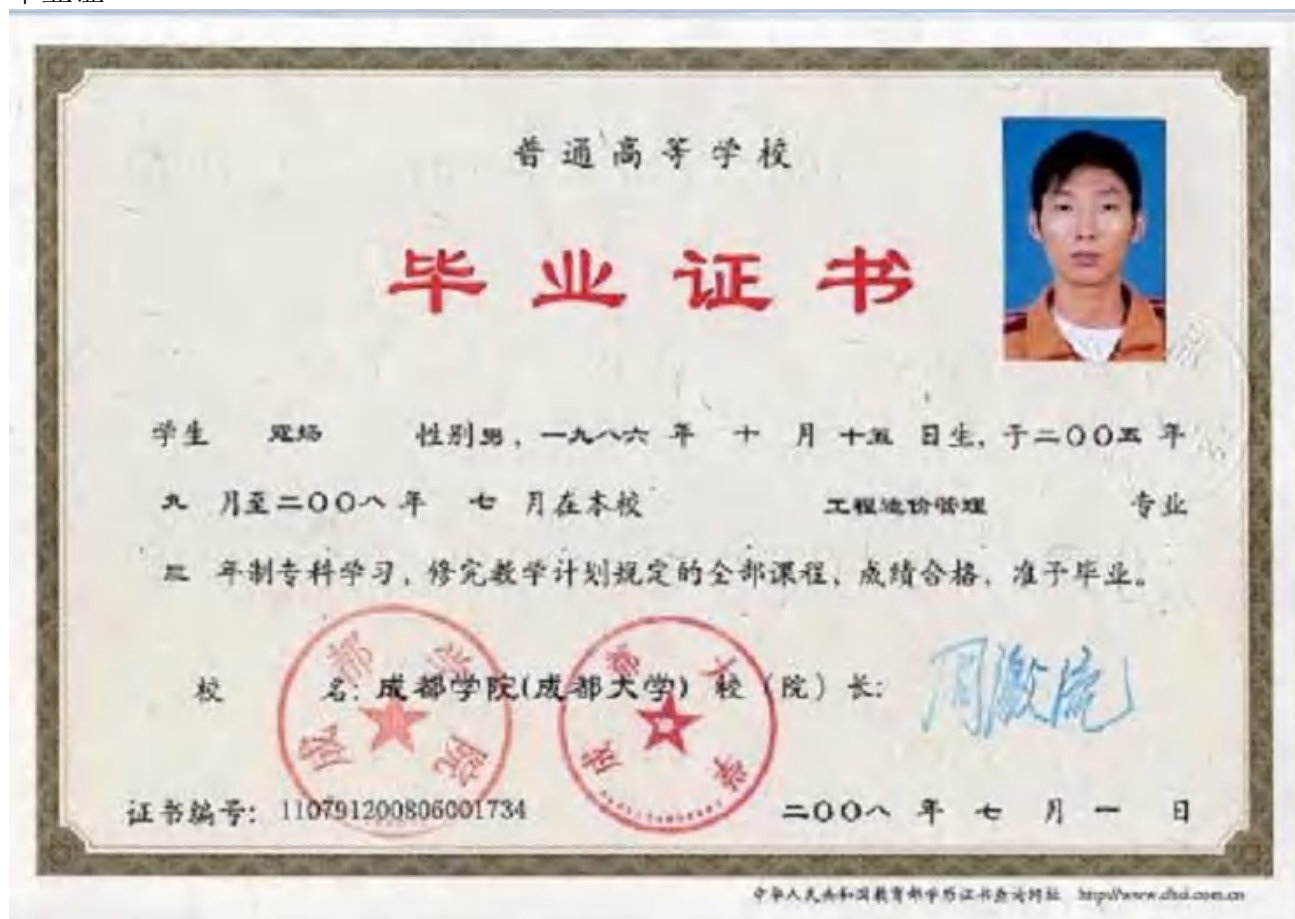 普通高等学校
毕业证书
学生 性别男，一九八六年 十 月 十五 日生，于二〇〇五 年
九 月至二〇〇八 年 七 月在本校 工程造价管理 专业
三 年制专科学习，修完教学计划规定的全部课程，成绩合格，准予毕业。
校 名：成都学院(成都大学) 校（院）长：周激流
成都学院
成都大学
证书编号：110791200806001734 二〇〇八 年 七 月 一 日
中华人民共和国教育部学历证书查询网址 http://www.chsi.com.cn